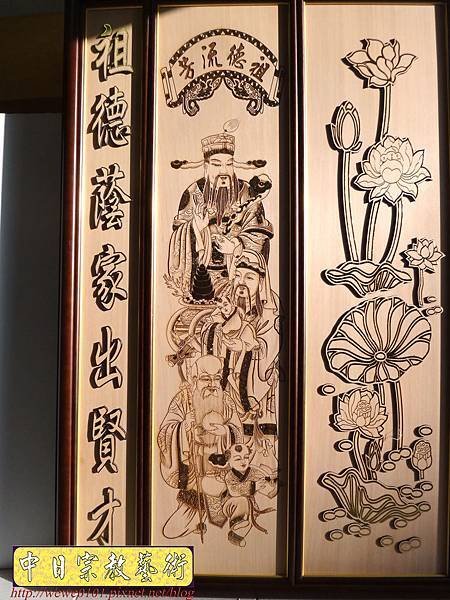 祖德蔭家出賢才
祖德流芳
中日宗教藝術
http://wewep101.pixnet.net/blog